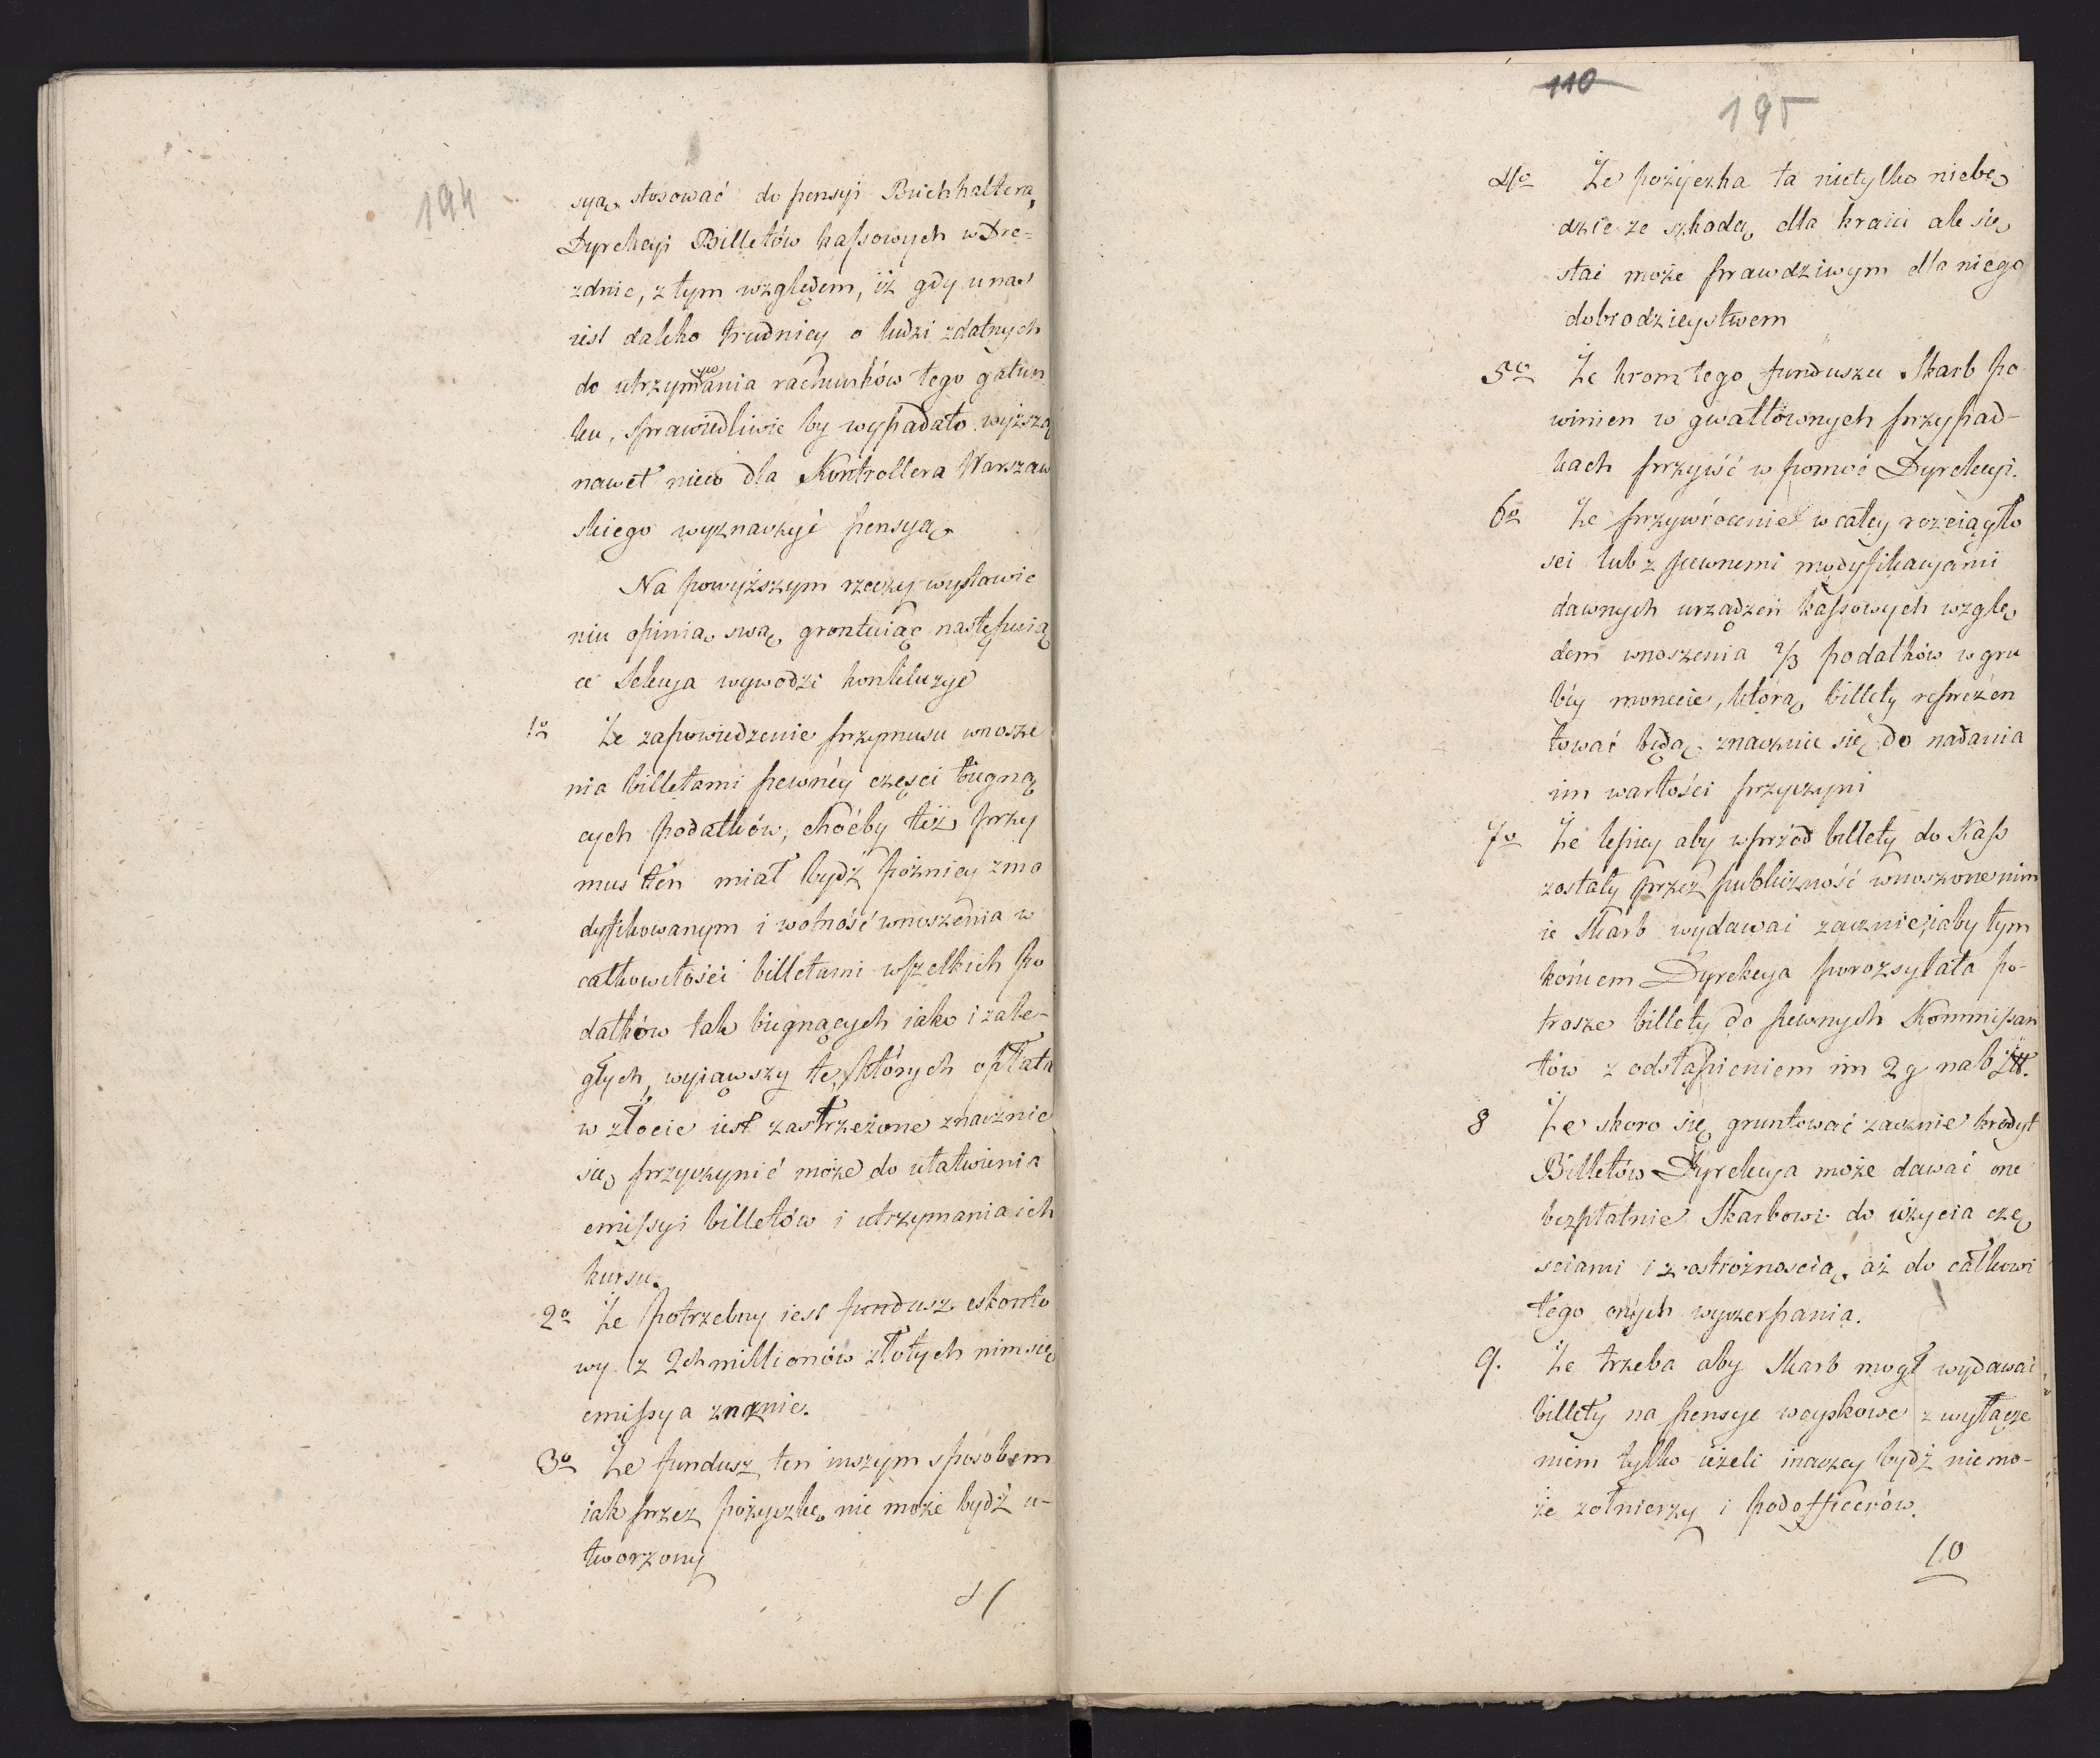 194
syą stosować do pensyi Buchhaltera,
Dyrekcyi Billetów kassowych w Dre=
zdnie, z tym względem, iż gdy u nas
iest daleko trudniey o ludzi zdatnych
do utrzymania rachunków tego gatun
ku, sprawiedliwie by wypadało wyższą
nawet nieco dla Kontrollera Warszaw
skiego wyznaczyć pensyą.
Na powyższym rzeczy wystawie
niu opinią swą gruntuiąc następuią
ce Sekcya wywodzi konkluzye
1o Że zapowiedzenie przymusu wnosze
nia billetami pewnéy części biegną
cych podatków, choćby też przy
mus ten miał bydź poźniey zmo
dyfikowanym i wolność wnoszenia w
całkowitości billetami wszelkich po
datków tak biegnących iako i zale-
głych, wyiąwszy te, których opłata
w złocie iest zastrzeżone znacznie
się przyczynić może do ułatwienia
emissyi billetów i utrzymania ich
kursu.
2o Że potrzebny iest fundusz eskonto
wy z 2ch millionów złotych nim się
emissya zacznie.
3o Że fundusz ten inszym sposobem
iak przez pożyczkę nie może bydź u-
tworzony
4/
110
195
4o Że pożyczka ta nietylko niebę
dzie ze szkodą dla kraiu ale się
stać może prawdziwym dla niego
dobrodzieystwem
5o Że krom tego funduszu Skarb po
winien w gwałtownych przypad-
kach przyiść w pomoc Dyrekcyi.
6o Że przywrócenie w całey rozciągło
ści lub z pewnemi modyfikacyami
dawnych urządzeń kassowych wzglę
dem wnoszenia 2/3 podatków w gru
béy monecie, którą billety reprezen
tować będą znacznie się do nadania
im wartości przyczyni
7o Że lepiey aby wprzód billety do Kass
zostały przez publiczność wnoszone nim
ie Skarb wydawać zacznie, iaby tym
końcem Dyrekcya porozsyłała po-
trosze billety do pewnych Kommissan
tów z odstąpieniem im 2 g na b
8 Że skoro się gruntować zacznie kredyt
Billetów Dyrekcya może dawać one
bezpłatnie Skarbowi do użycia czę
ściami i z ostrożnością aż do całkowi
tego onych wyczerpania.
9. Że trzeba aby Skarb mogł wydawać
billety na pensye woyskowe z wyłącze
niem tylko ieżeli inaczey bydź niemo-
że żołnierzy i podofficerów.
10